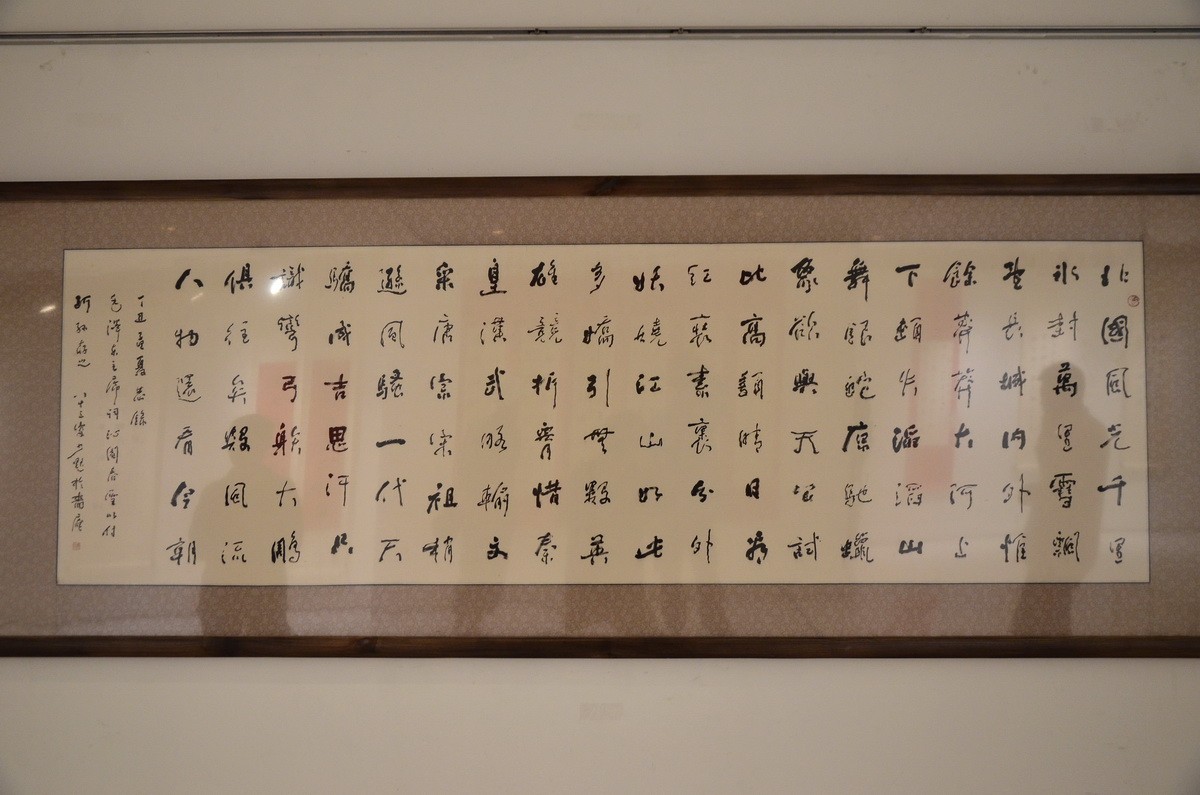 北國風光千里
冰封萬里雪飄
望長城內外惟
餘莽莽大河上
下頓失滔滔山
舞銀蛇原馳蠟
象欲與天公試
比高須晴日看
紅裝素裹分外
妖嬈江山如此
多嬌引無數英
雄競折腰惜秦
皇漢武略輸文
采唐宗宋祖稍
遜風騷一代天
驕成吉思汗只
識彎弓射大鵰
俱往矣數風流
人物還看今朝
丁丑夏恭錄
毛澤東主席詞沁園春雪以付
孫存之 八十三叟